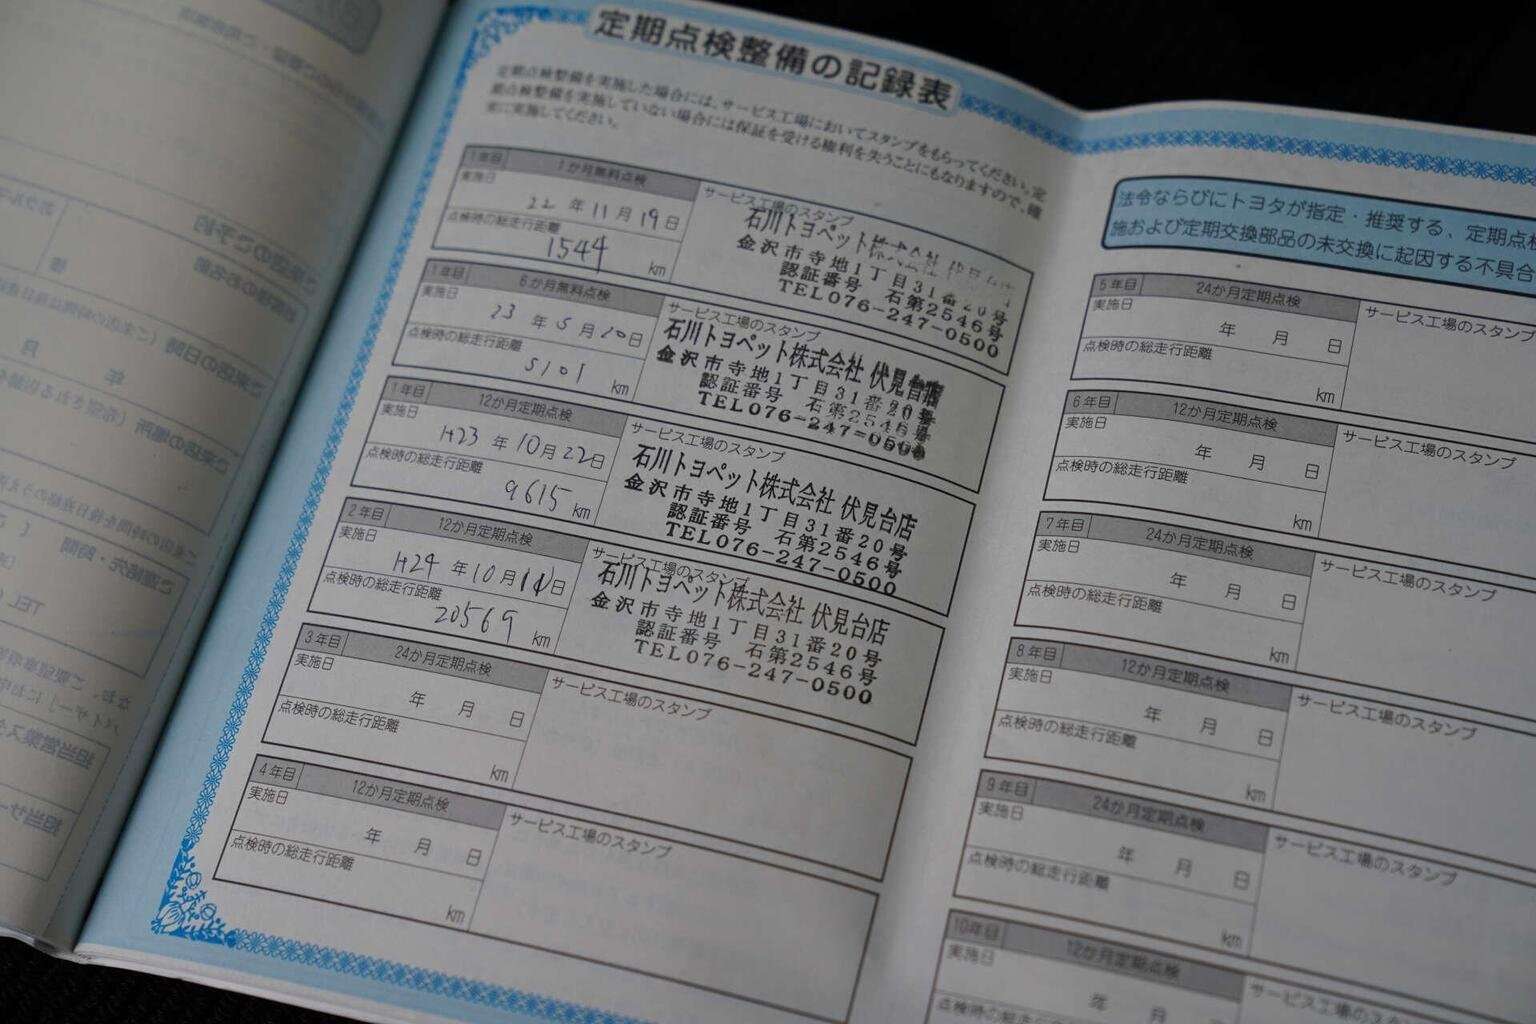 定期点検整備の記録表
定期点検整備を実施した場合には、サービス工場においてスタンプをもらってください。定
期点検整備を実施していない場合には保証を受ける権利を失うことにもなりますので、確
実に実施してください。
1年目 1か月無料点検
実施日
22年11月19日
点検時の総走行距離
1544 km
サービス工場のスタンプ
石川トヨペット株式会社
金沢市寺地1丁目31番20号
認証番号 石第2546号
TEL076-247-0500
1年目 6か月無料点検
実施日
23年5月20日
点検時の総走行距離
5101 km
サービス工場のスタンプ
石川トヨペット株式会社 伏見台店
金沢市寺地1丁目31番20号
認証番号 石第2546号
TEL076-247-0500
1年目 12か月定期点検
実施日
H23年10月22日
点検時の総走行距離
9615 km
サービス工場のスタンプ
石川トヨペット株式会社 伏見台店
金沢市寺地1丁目31番20号
認証番号 石第2546号
TEL076-247-0500
2年目 12か月定期点検
実施日
H24年10月 日
点検時の総走行距離
20569 km
サービス工場のスタンプ
石川トヨペット株式会社 伏見台店
金沢市寺地1丁目31番20号
認証番号 石第2546号
TEL076-247-0500
3年目 24か月定期点検
実施日
年 月 日
点検時の総走行距離
km
サービス工場のスタンプ
4年目 12か月定期点検
実施日
年 月 日
点検時の総走行距離
km
サービス工場のスタンプ
法令ならびにトヨタが指定・推奨する、定期点検
施および定期交換部品の未交換に起因する不具合
5年目 24か月定期点検
実施日
年 月 日
点検時の総走行距離
km
サービス工場のスタンプ
6年目 12か月定期点検
実施日
年 月 日
点検時の総走行距離
km
サービス工場のスタンプ
7年目 24か月定期点検
実施日
年 月 日
点検時の総走行距離
km
サービス工場のスタンプ
8年目 12か月定期点検
実施日
年 月 日
点検時の総走行距離
km
サービス工場のスタンプ
9年目 24か月定期点検
実施日
年 月 日
点検時の総走行距離
km
サービス工場のスタンプ
10年目 12か月定期点検
実施日
年 月 日
点検時の総走行距離
サービス工場のスタンプ